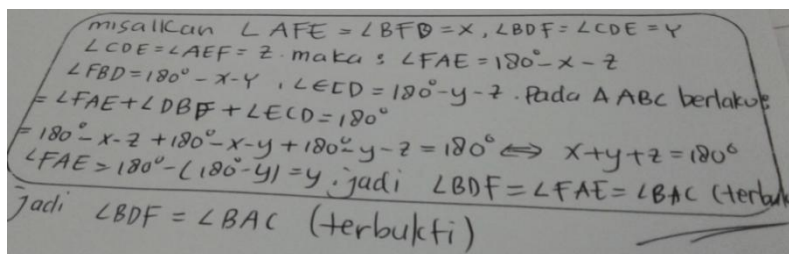 misalkan ∠AFE = ∠BFD = x, ∠BDF = ∠CDE = y
∠CDE = ∠AEF = z. maka : ∠FAE = 180° - x - z
∠FBD = 180° - x - y, ∠ECD = 180° - y - z. Pada Δ ABC berlaku :
= ∠FAE + ∠DBF + ∠ECD = 180°
= 180° - x - z + 180° - x - y + 180° - y - z = 180° ⇔ x + y + z = 180°
∠FAE = 180° - (180° - y) = y. jadi ∠BDF = ∠FAE = ∠BAC (terbuk
Jadi ∠BDF = ∠BAC (terbukti)